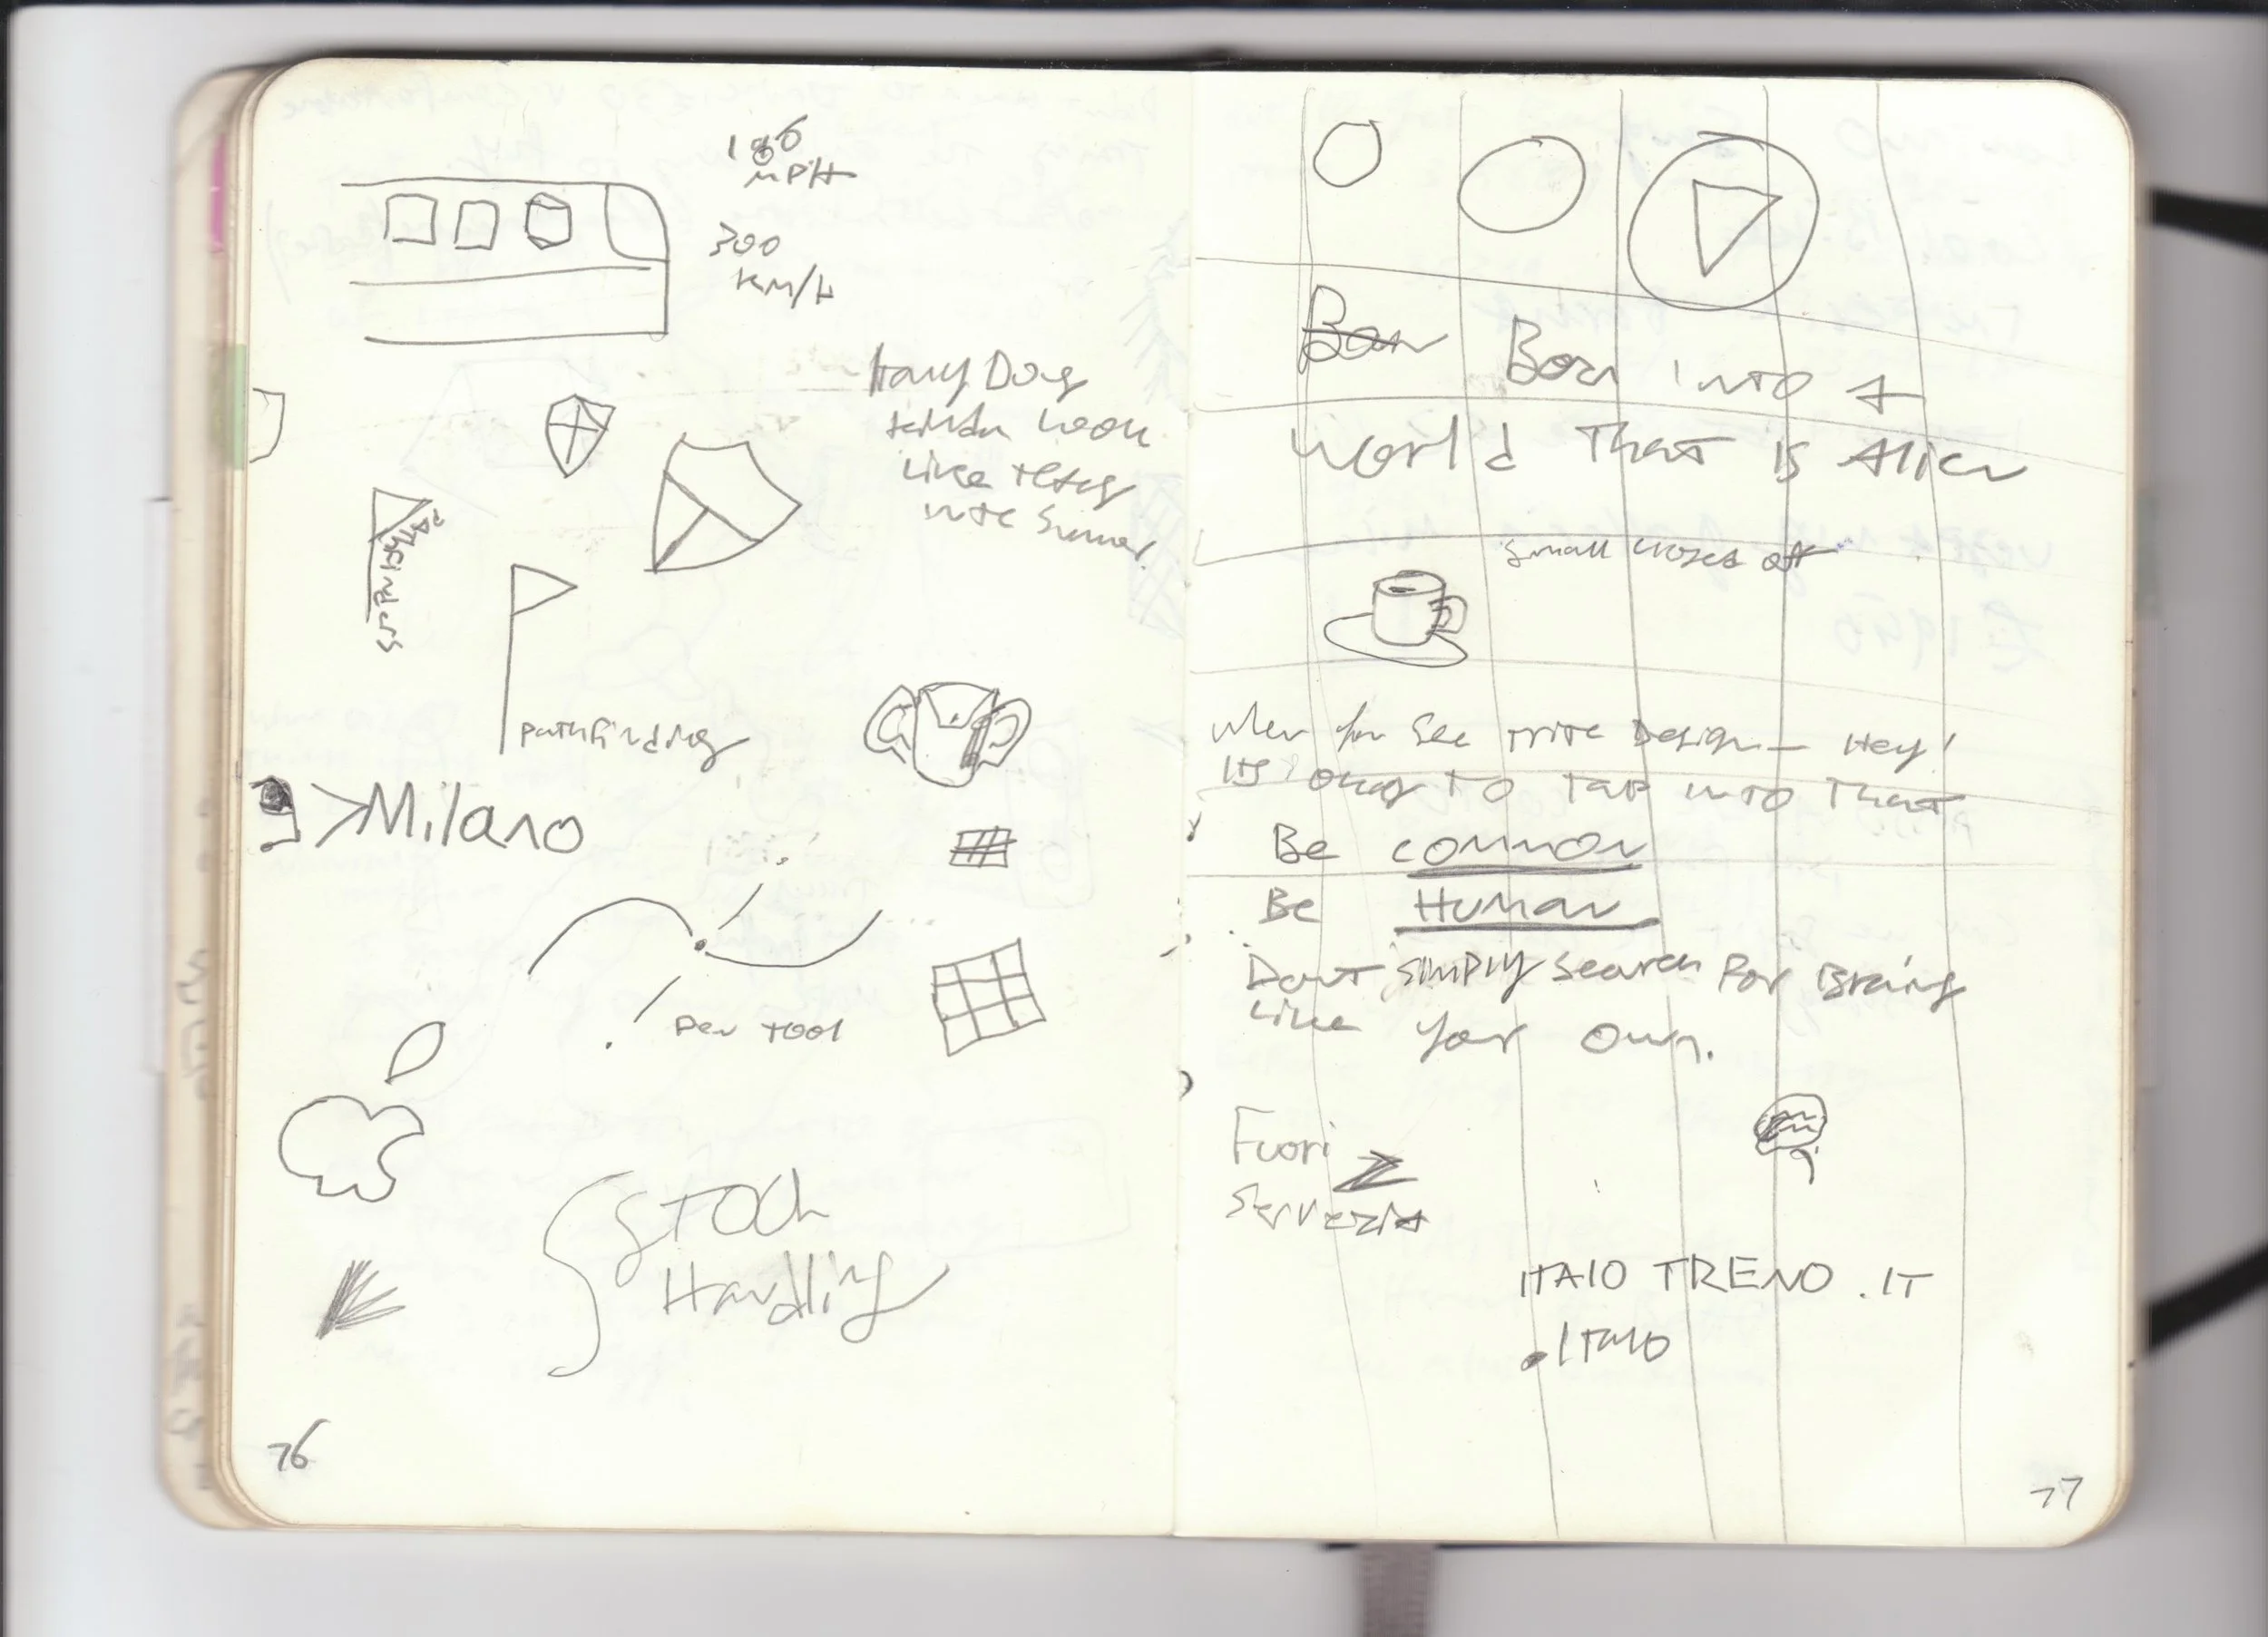 186
MPH
300
KM/H
Hairy Dogs
kinda look
like they
in summer
pathfinding
>Milano
pen tool
STOCK
Handling
76
Born Born into a
World That is Alien
small closes off
when you see trite Design— Hey!
its okay to tap into that
Be common
Be Human
Dont simply search for Brains
Like your own.
Fuori
Servezio
ITALO TRENO .IT
.ITALO
77